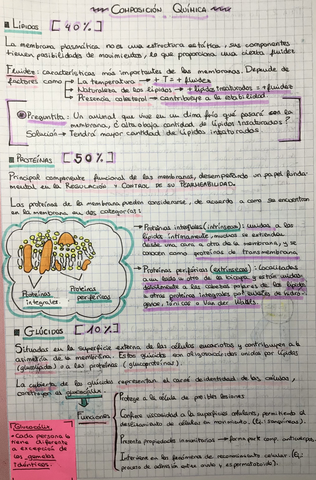 COMPOSICIÓN QUÍMICA
LÍPIDOS [40%]
La membrana plasmática no es una estructura estática, sus componentes
tienen posibilidades de movimientos, lo que proporciona una cierta fluidez.
Fluidez: características más importantes de las membranas. Depende de
factores como → La temperatura → + T = + fluidez
→ Naturaleza de los lípidos → + lípidos insaturados = + fluidez
→ Presencia colesterol → contribuye a la estabilidad.
Preguntita: Un animal que vive en un clima frío qué pasará con la
membrana, ¿alta o baja cantidad de lípidos insaturados?
Solución → Tendrá mayor cantidad de lípidos insaturados.
PROTEÍNAS [50%]
Principal componente funcional de las membranas, desempeñando un papel funda-
mental en la REGULACIÓN Y CONTROL DE SU PERMEABILIDAD.
Las proteínas de la membrana pueden considerarse, de acuerdo a como se encuentran
en la membrana en dos categorías:
→ Proteínas integrales (intrínsecas): unidas a los
lípidos íntimamente, muchas se extienden
desde una cara a otra de la membrana, y se
conocen como proteínas de transmembrana.
→ Proteínas periféricas (extrínsecas): Localizadas
a un lado u otro de la bicapa y están unidas
débilmente a las cabezas polares de los lípidos
u otras proteínas integrales por puentes de hidró-
geno, iónicos o Van der Walls.
Proteínas
integrales
Proteínas
periféricas
GLÚCIDOS [10%]
Situados en la superficie externa de las células eucariotas y contribuyen a la
asimetría de la membrana. Estos glúcidos son oligosacáridos unidos por lípidos
(glucolípidos) o a las proteínas (glucoproteínas).
La cubierta de los glúcidos representan el carné de identidad de las células,
constituyen el glucocálix.
Funciones
Protege a la célula de posibles lesiones
Confiere viscosidad a la superficies celulares, permitiendo el
deslizamiento de células en movimiento. (Ej: sanguíneas).
Presenta propiedades inmunitarias → forma parte comp. anticuerpos.
Interviene en los fenómenos de reconocimiento celular. (Ej:
proceso de adhesión entre óvulo y espermatozoide).
Glucocálix
• Cada persona lo
tiene diferente
a excepción de
los gemelos
idénticos.